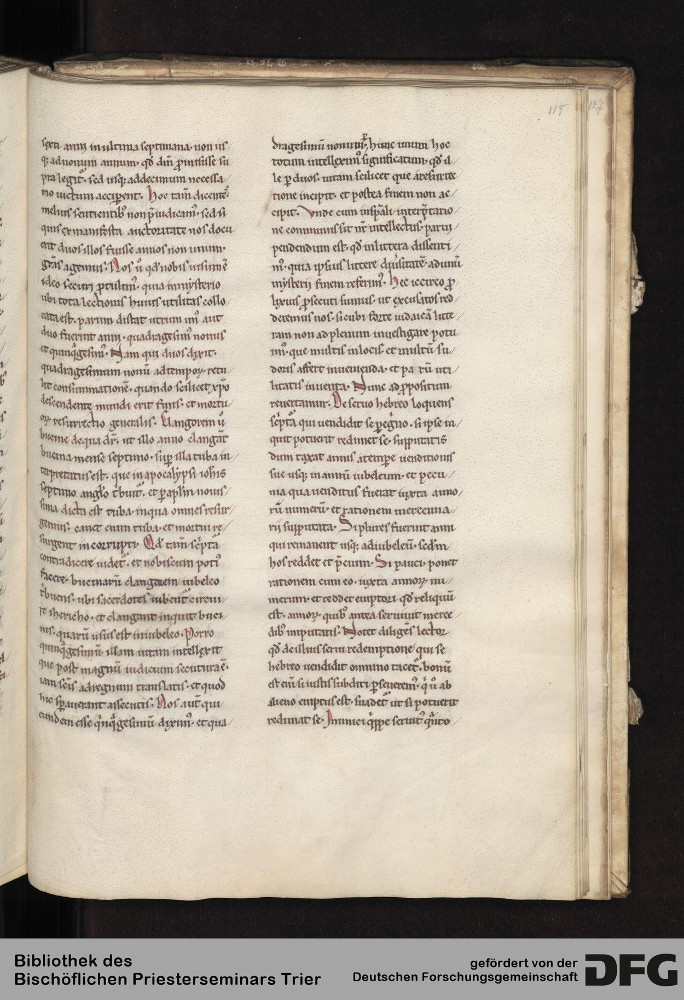 115 127
sexti anni in ultima septimana. non us
q; ad nonum annum. qd dnm promisisse su
pra legit᷒. sed usq; ad decimum necessa
rio uictum acciperent. Hoc tam dicente
melius sentientib᷒ non p̄iudicam᷒. sed si
quis ex manifesta auctoritate nos docu
erit duos illos fuisse annos non unum.
gr̄as agemus. Nos u̅ qd nobis uisum ē
ideo securi ptulim᷒. quia in mysterio
ubi tota lectionis huius utilitas collo
cata est. parum distat utrum un᷒ aut
duo fuerint anni. quadragesim᷒ nonus
et quinq̄gesim᷒. Nam qui duos dixit.
quadragesimum nonū ad tempor̄ retu
lit consummationē. quando scilicet xp̄o
descendente mundi erit finis. et mortu
or̄ resurrectio generalis. Clangorem u̅
bucine de qua dr̄. ut illo anno clangat᷒
bucina mense septimo. sup illa tuba in
terpretatus est. que in apocalypsi iohis
septimo anglo t̄buit᷒. et p aplm nouis
sima dicta est tuba. in qua omnes resur
gemus. canet enim tuba. et mortui re
surgent incorrupti. Qd tam sc̄pta
contradicere uidet᷒. et nobiscum poti᷒
facere. bucinarū clangorem iubeleo
t̄buens. ubi sacerdotes iubent᷒ circui
re ihericho. et clangant inquit buci
nis. quarū usus est in iubeleo. Porro
quinq̄gesimū illam uitam intellexit
que post magnū iudicium secutura ē.
iam seis ad regnum translatis. et quod
hic sperauerant assecutis. Nos aut̄ qui
eundem esse q̄nq̄gesimū diximus. et qua
dragesimū nonum. hunc unum hoc
totum intelleximus significatum. qd il
le p duos. uitam scilicet que a resurrec
tione incipit. et postea finem non ac
cipit. Unde cum insp̄ali interp̄tatio
ne communis sit nr̄ intellectus. parui
pendendum est. qd in littera dissenti
m᷒. quia ipsius littere diuersitatē ad unū
mysterii finem referim᷒. Hec iccirco p
lixius psecuti sumus. ut excusatos red
deremus nos. sicubi forte iudaicā litte
ram non ad plenum inuestigare potu
im᷒. que multis in locis. et multū su
doris affert inuenienda. et pa rū uti
litatis inuenta. Nunc ad ppositum
reuertamur. De seruo hebreo loquens
sc̄pta qui uendidit se pegrino. si ipse in
quit potuerit redimet se. supputatis
dum taxat annis a tempe uenditionis
sue usq; in annū iubeleum. et pecu
nia qua uenditus fuerat iuxta anno
rū numerū. et rationem mercenna
rii supputata. Si plures fuerint anni
qui remanent usq; ad iubeleū. sedm̄
hos reddet et p̄cium. Si pauci. ponet
rationem cum eo. iuxta annor̄ nu
merum. et reddet emptori qd reliquū
est. annor̄ quib᷒ antea seruiuit merce
dib᷒ imputatis. Notet diligens lector.
qd de illius serui redemptione. qui se
hebreo uendidit omnino tacet᷒. bonū
est eni si iustis subditi pseuerem᷒. q̄ u̅ ab
alieno emptus est. suadet᷒ ut si potuerit
redimat se. Inimici q̄ppe seruit᷒ q̄nto
Bibliothek des
Bischöflichen Priesterseminars Trier
gefördert von der
Deutschen Forschungsgemeinschaft
DFG